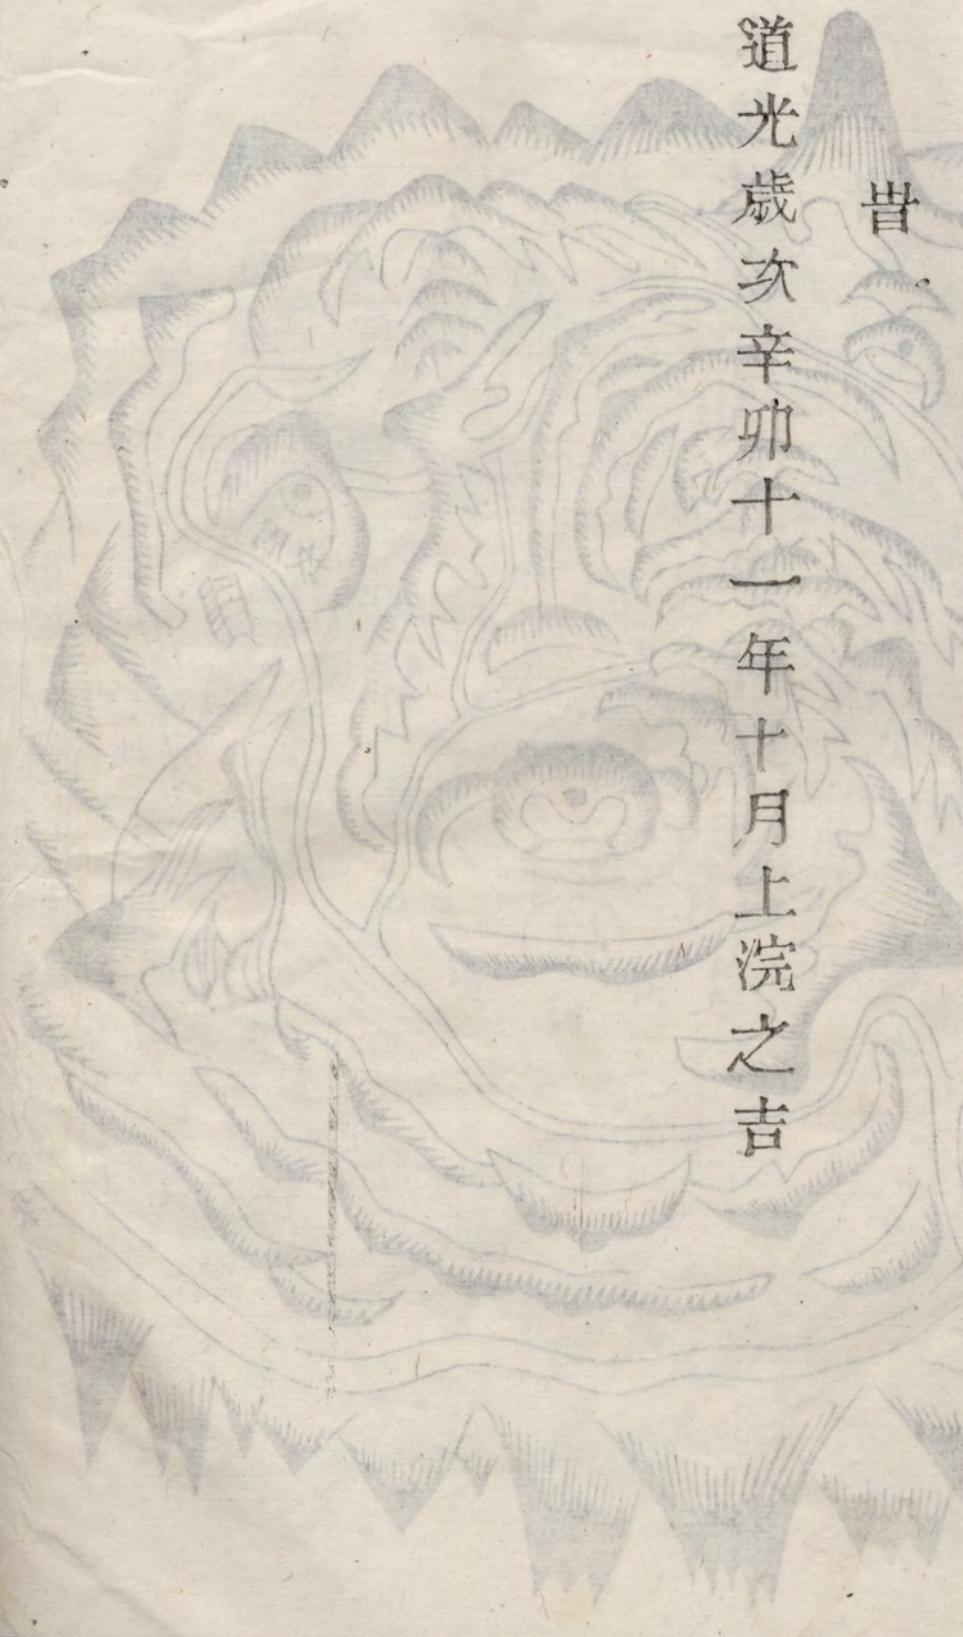 旹
道光歲次辛卯十一年十月上浣之吉